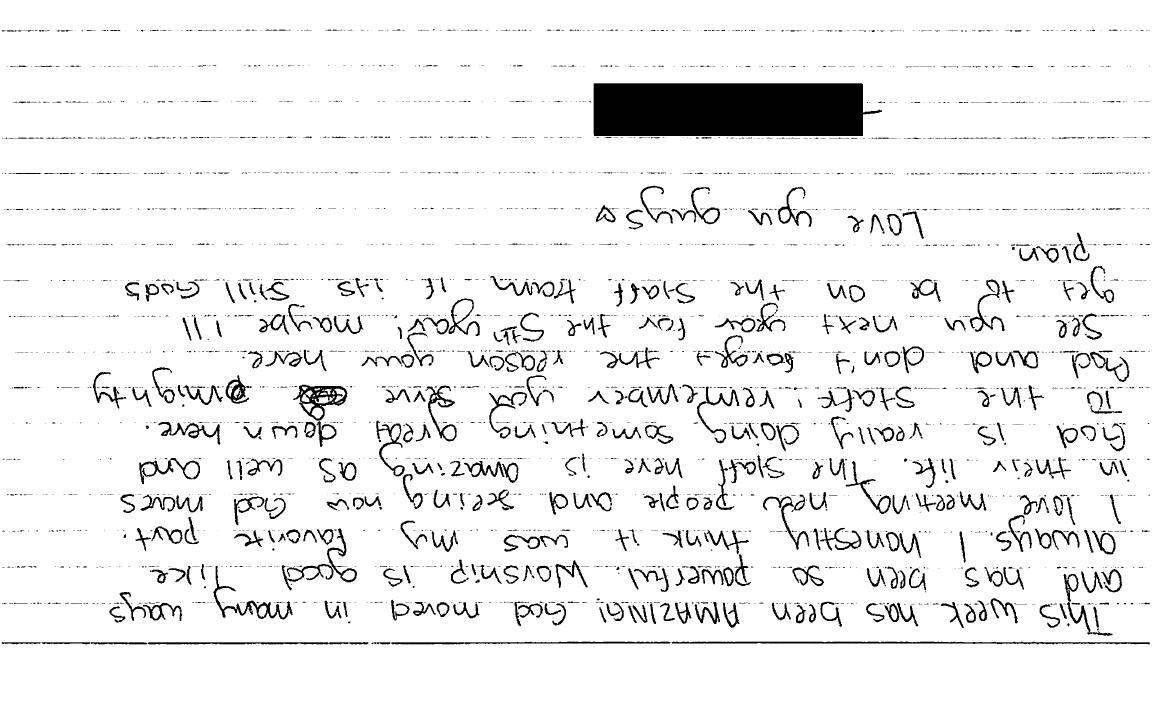 This week has been AMAZING! God moved in many ways
and has been so powerful. Worship is good like
always. I honestly think it was my favorite part.
I love meeting new people and seeing how God moves
in their life. The staff here is amazing as well and
God is really doing something great down here.
To the staff, remember you serve a mighty
God and don't forget the reason your here.
See you next year for the 5th year, maybe I'll
get to be on the staff team if its still Gods
plan.
Love you guys ♡